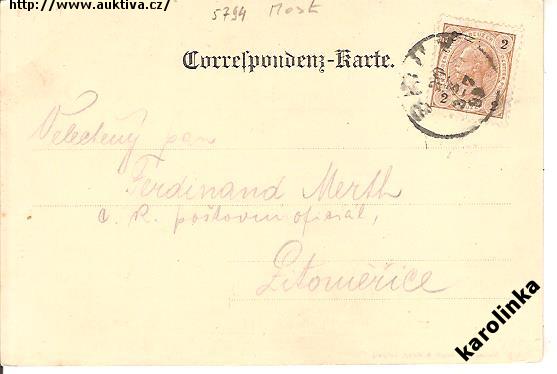 http://www.auktiva.cz/
5794 Most
Correspondenz-Karte.
2 2
2
Velectěný pan
Ferdinand Merth
c. k. poštovní oficiál,
Litoměřice
karolinka